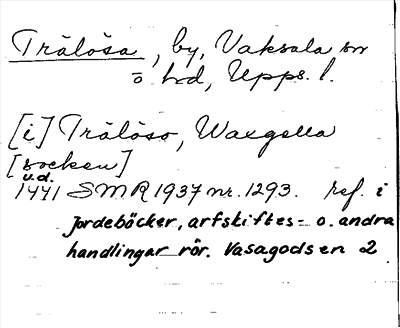 Trälösa, by, Vaksala sn
o hd, Upps. l.
[i] Trälöso, Waxgella
[socken]
u.d.
1441 SMR 1937 nr. 1293. ref. i
Jordeböcker, arfskiftes= o. andra
handlingar rör. Vasagodsen 2